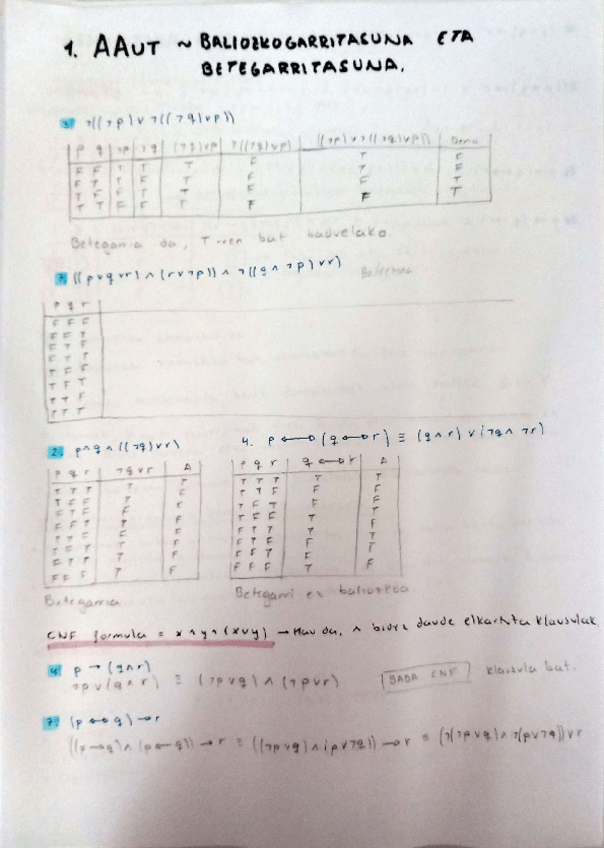 1. AAUT ~ BALIOZKOGARRITASUNA ETA
BETEGARRITASUNA.
3. ¬((¬p) ∨ ¬((¬q) ∨ p))
p q ¬p ¬q (¬q)∨p ¬((¬q)∨p) ((¬p)∨¬((¬q)∨p)) Dena
F F T T T F T F
F T T F
T F F T T F F T
T T F F T F F T
Betegarria da, T-ren bat baduelako.
((p∨q∨r) ∧ (r∨¬p)) ∧ ¬((q∧¬p)∨r)
p q r
F F F
F F T
F T F
F T T
T F F
T F T
T T F
T T T
2. p∧q∧((¬q)∨r)
p q r ¬q∨r A
T T T T T
Betegarria
4. p ↔ (q ↔ r) ≡ (q∧r) ∨ (¬q ∧ ¬r)
p q r q ↔ r A
T T T T T
T T F F F
T F T F F
T F F T T
F T T T F
F T F F T
F F T F T
F F F T F
Betegarri ez baliozkoa
CNF formula = x∧y∧(x∨y) → Hau da, ∧ bidez daude elkartuta klausulak.
4. p → (q∧r)
¬p∨(q∧r) ≡ (¬p∨q) ∧ (¬p∨r) BADA CNF klausula bat.
7. (p ↔ q) → r
((p→q)∧(p←q)) → r ≡ ((¬p∨q)∧(p∨¬q)) → r ≡ (¬(¬p∨q)∧¬(p∨¬q))∨r